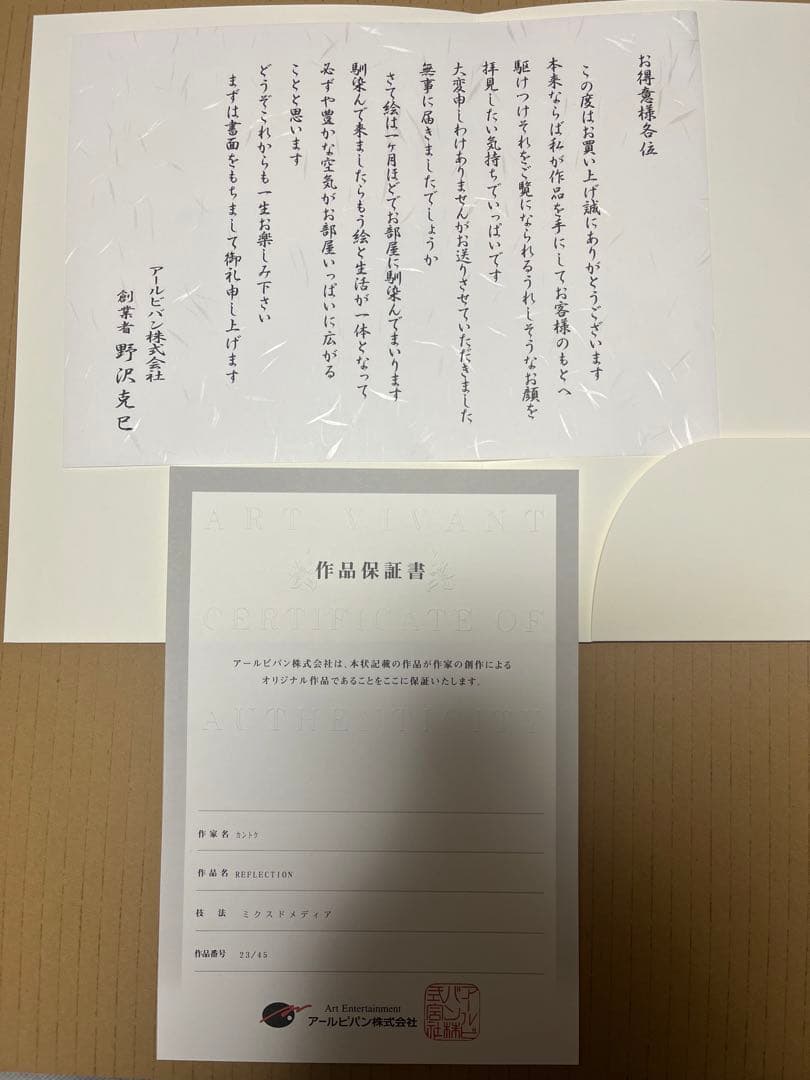 お得意様各位
この度はお買い上げ誠にありがとうございます
本来ならば私が作品を手にしてお客様のもとへ
駆けつけそれをご覧になられるうれしそうなお顔を
拝見したい気持ちでいっぱいです
大変申しわけありませんがお送りさせていただきました
無事に届きましたでしょうか
さて絵は一ヶ月ほどでお部屋に馴染んでまいります
馴染んで来ましたらもう絵と生活が一体となって
必ずや豊かな空気がお部屋いっぱいに広がる
ことと思います
どうぞこれからも一生お楽しみ下さい
まずは書面をもちまして御礼申し上げます
アールビバン株式会社
創業者 野沢克巳
ART VIVANT
作品保証書
CERTIFICATE OF
アールビバン株式会社は、本状記載の作品が作家の創作による
オリジナル作品であることをここに保証いたします。
AUTHENTICITY
作家名 カントク
作品名 REFLECTION
技 法 ミクスドメディア
作品番号 23/45
Art Entertainment
アールビバン株式会社
アールビ
バン株
式会社